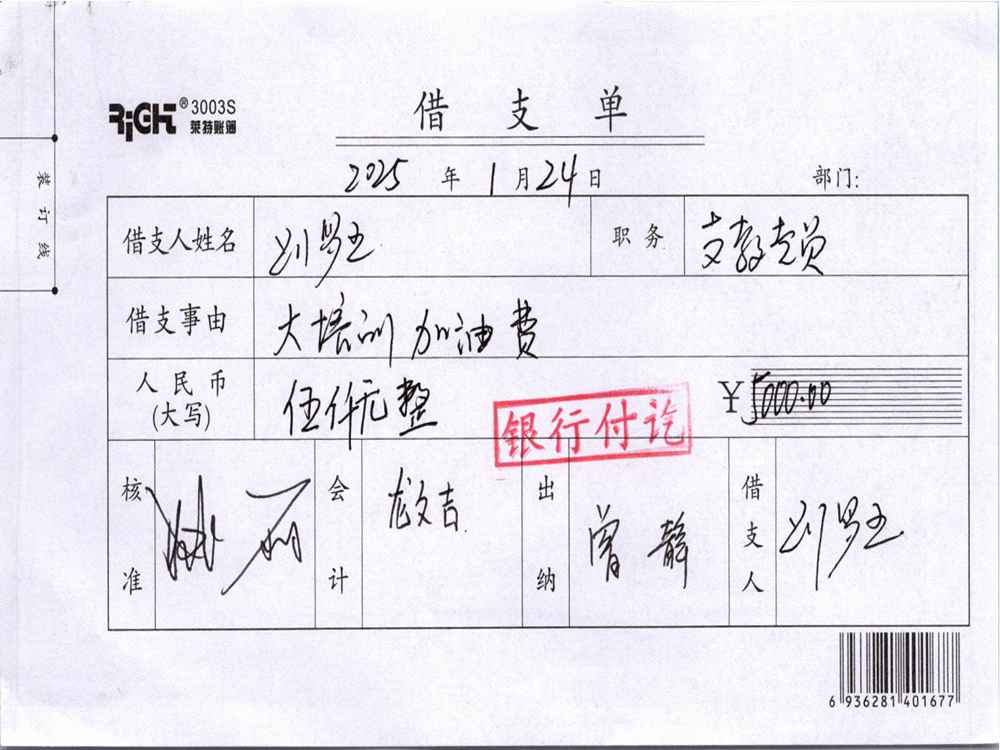 RiGHT® 3003S
莱特账簿
借支单
2025 年 1 月 24 日 部门:
装订线
借支人姓名 刘 职务 支教专员
借支事由 大培训加油费
人民币(大写) 伍仟元整 ¥5000.00
银行付讫
核准 会计 龙文吉 出纳 曾静 借支人 刘
6 936281 401677